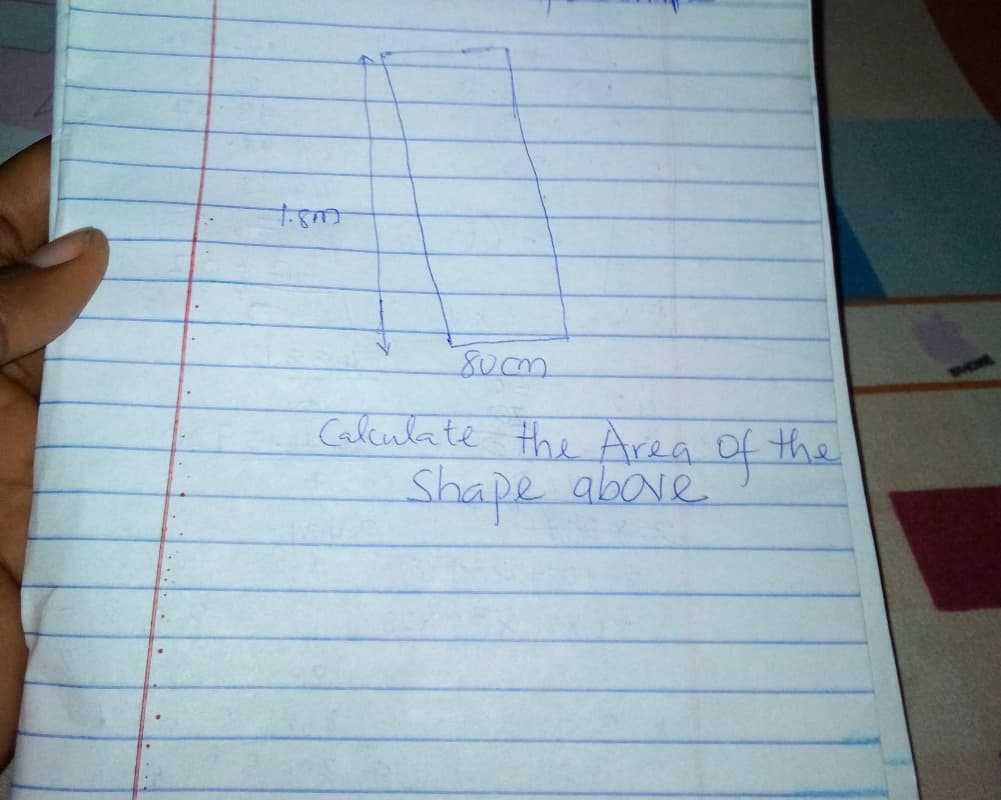 1.8m
80cm
Calculate the Area of the
Shape above